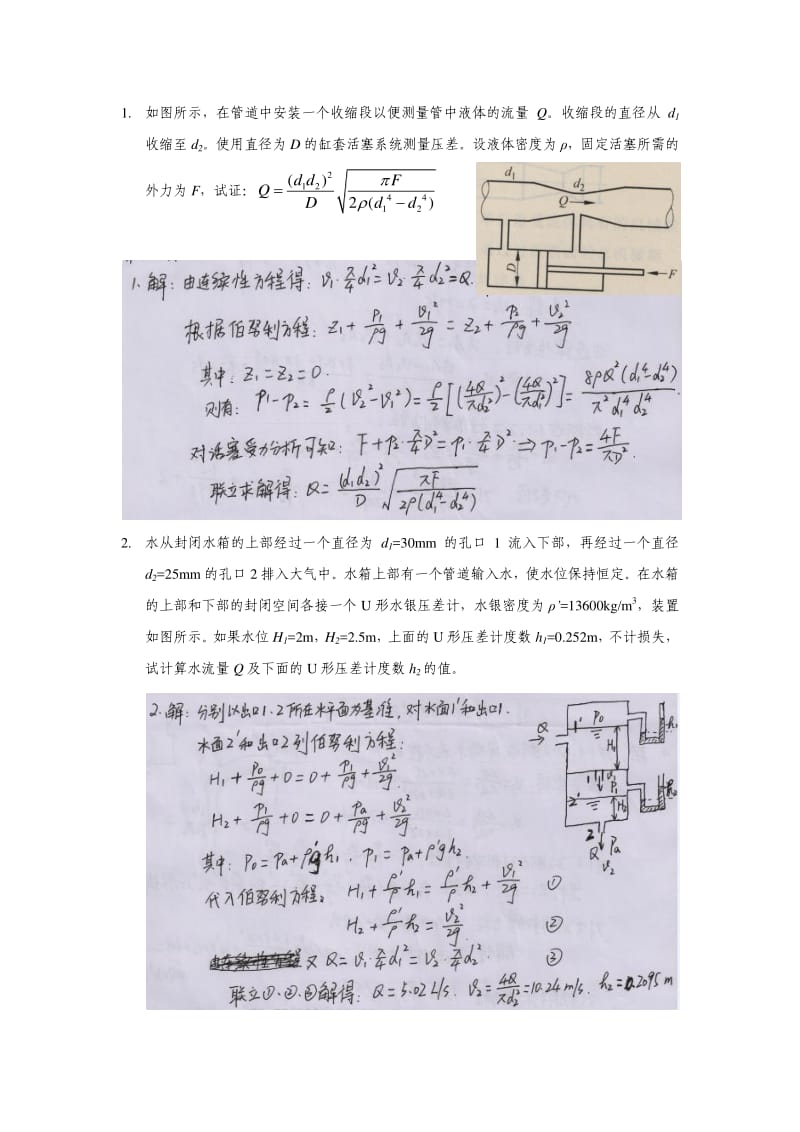 1. 如图所示，在管道中安装一个收缩段以便测量管中液体的流量 Q。收缩段的直径从 d₁
收缩至 d₂。使用直径为 D 的缸套活塞系统测量压差。设液体密度为 ρ，固定活塞所需的
外力为 F，试证：Q = (d₁d₂)²/D √(πF/(2ρ(d₁⁴−d₂⁴)))
d₁
d₂
Q
D
F
1.解：由连续性方程得：v₁·π/4 d₁² = v₂·π/4 d₂² = Q.
根据伯努利方程：z₁ + p₁/ρg + v₁²/2g = z₂ + p₂/ρg + v₂²/2g
其中：z₁ = z₂ = 0.
则有：p₁−p₂ = ρ/2 (v₂²−v₁²) = ρ/2 [(4Q/πd₂²)² − (4Q/πd₁²)²] = 8ρQ²(d₁⁴−d₂⁴)/(π²d₁⁴d₂⁴)
对活塞受力分析可知：F + p₂·π/4 D² = p₁·π/4 D² ⇒ p₁−p₂ = 4F/πD².
联立求解得：Q = (d₁d₂)²/D √(πF/(2ρ(d₁⁴−d₂⁴)))
2. 水从封闭水箱的上部经过一个直径为 d₁=30mm 的孔口 1 流入下部，再经过一个直径
d₂=25mm 的孔口 2 排入大气中。水箱上部有一个管道输入水，使水位保持恒定。在水箱
的上部和下部的封闭空间各接一个 U 形水银压差计，水银密度为 ρ'=13600kg/m³，装置
如图所示。如果水位 H₁=2m，H₂=2.5m，上面的 U 形压差计度数 h₁=0.252m，不计损失，
试计算水流量 Q 及下面的 U 形压差计度数 h₂ 的值。
2.解：分别以出口1.2所在水平面为基准，对水面1'和出口1.
水面2'和出口2列伯努利方程：
H₁ + p₀/ρg + 0 = 0 + p₁/ρg + v₁²/2g
H₂ + p₁/ρg + 0 = 0 + pa/ρg + v₂²/2g
其中：p₀ = pa + ρ'gh₁，p₁ = pa + ρ'gh₂
代入伯努利方程：H₁ + ρ'/ρ h₁ = ρ'/ρ h₂ + v₁²/2g ①
H₂ + ρ'/ρ h₂ = v₂²/2g ②
又 Q = v₁·π/4 d₁² = v₂·π/4 d₂² ③
联立①、②、③解得：Q = 5.02 L/s. v₂ = 4Q/πd₂² = 10.24 m/s. h₂ = 0.2095 m
Q
1'
P₀
H₁
h₁
1
d₁
P₁
2'
H₂
h₂
2
Q
Pa
v₂